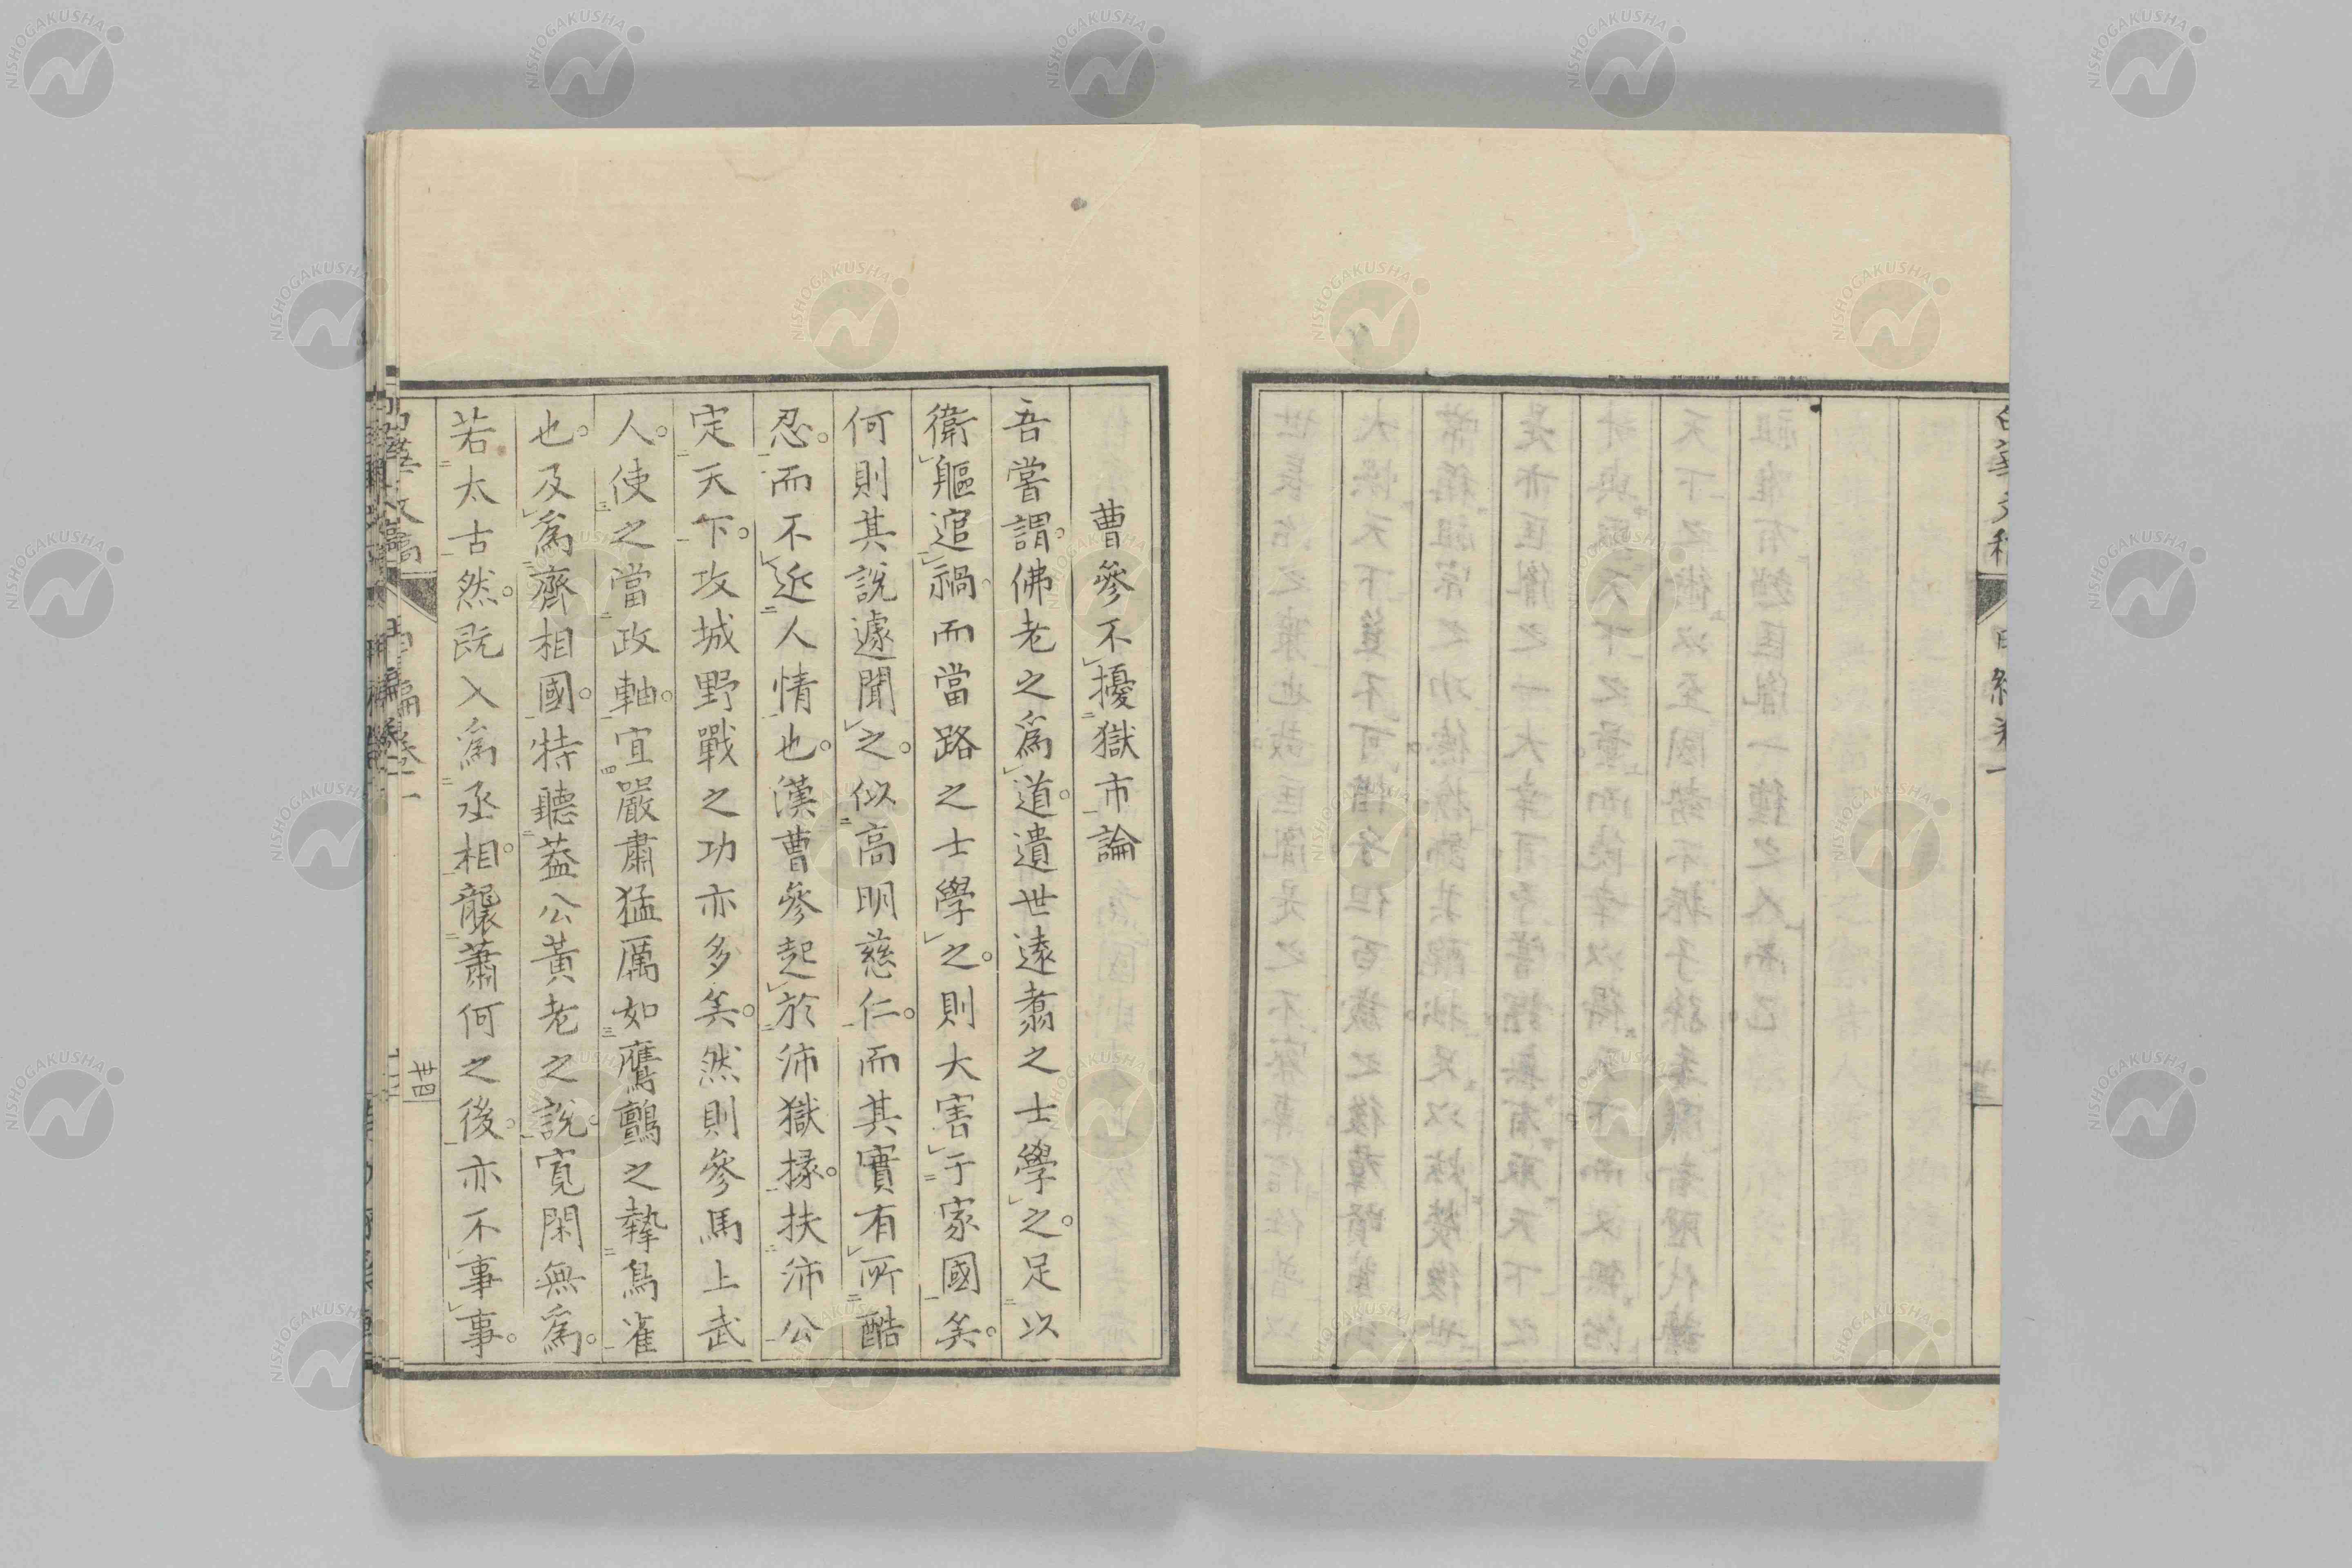 曹參不擾獄市論
吾嘗謂。佛老之爲道。遺世遠翥之士學之。足以
衛軀逭禍。而當路之士學之。則大害于家國矣。
何則其說遽聞之。似高明慈仁。而其實有所酷
忍。而不近人情也。漢曹參起於沛獄掾。扶沛公
定天下。攻城野戰之功亦多矣。然則參馬上武
人。使之當政軸。宜嚴肅猛厲如鷹鸇之摯鳥雀
也。及爲齊相國。特聽葢公黃老之說。寬閑無爲。
若太古然。既入爲丞相。襲蕭何之後。亦不事事。
廿四
NISHOGAKUSHA